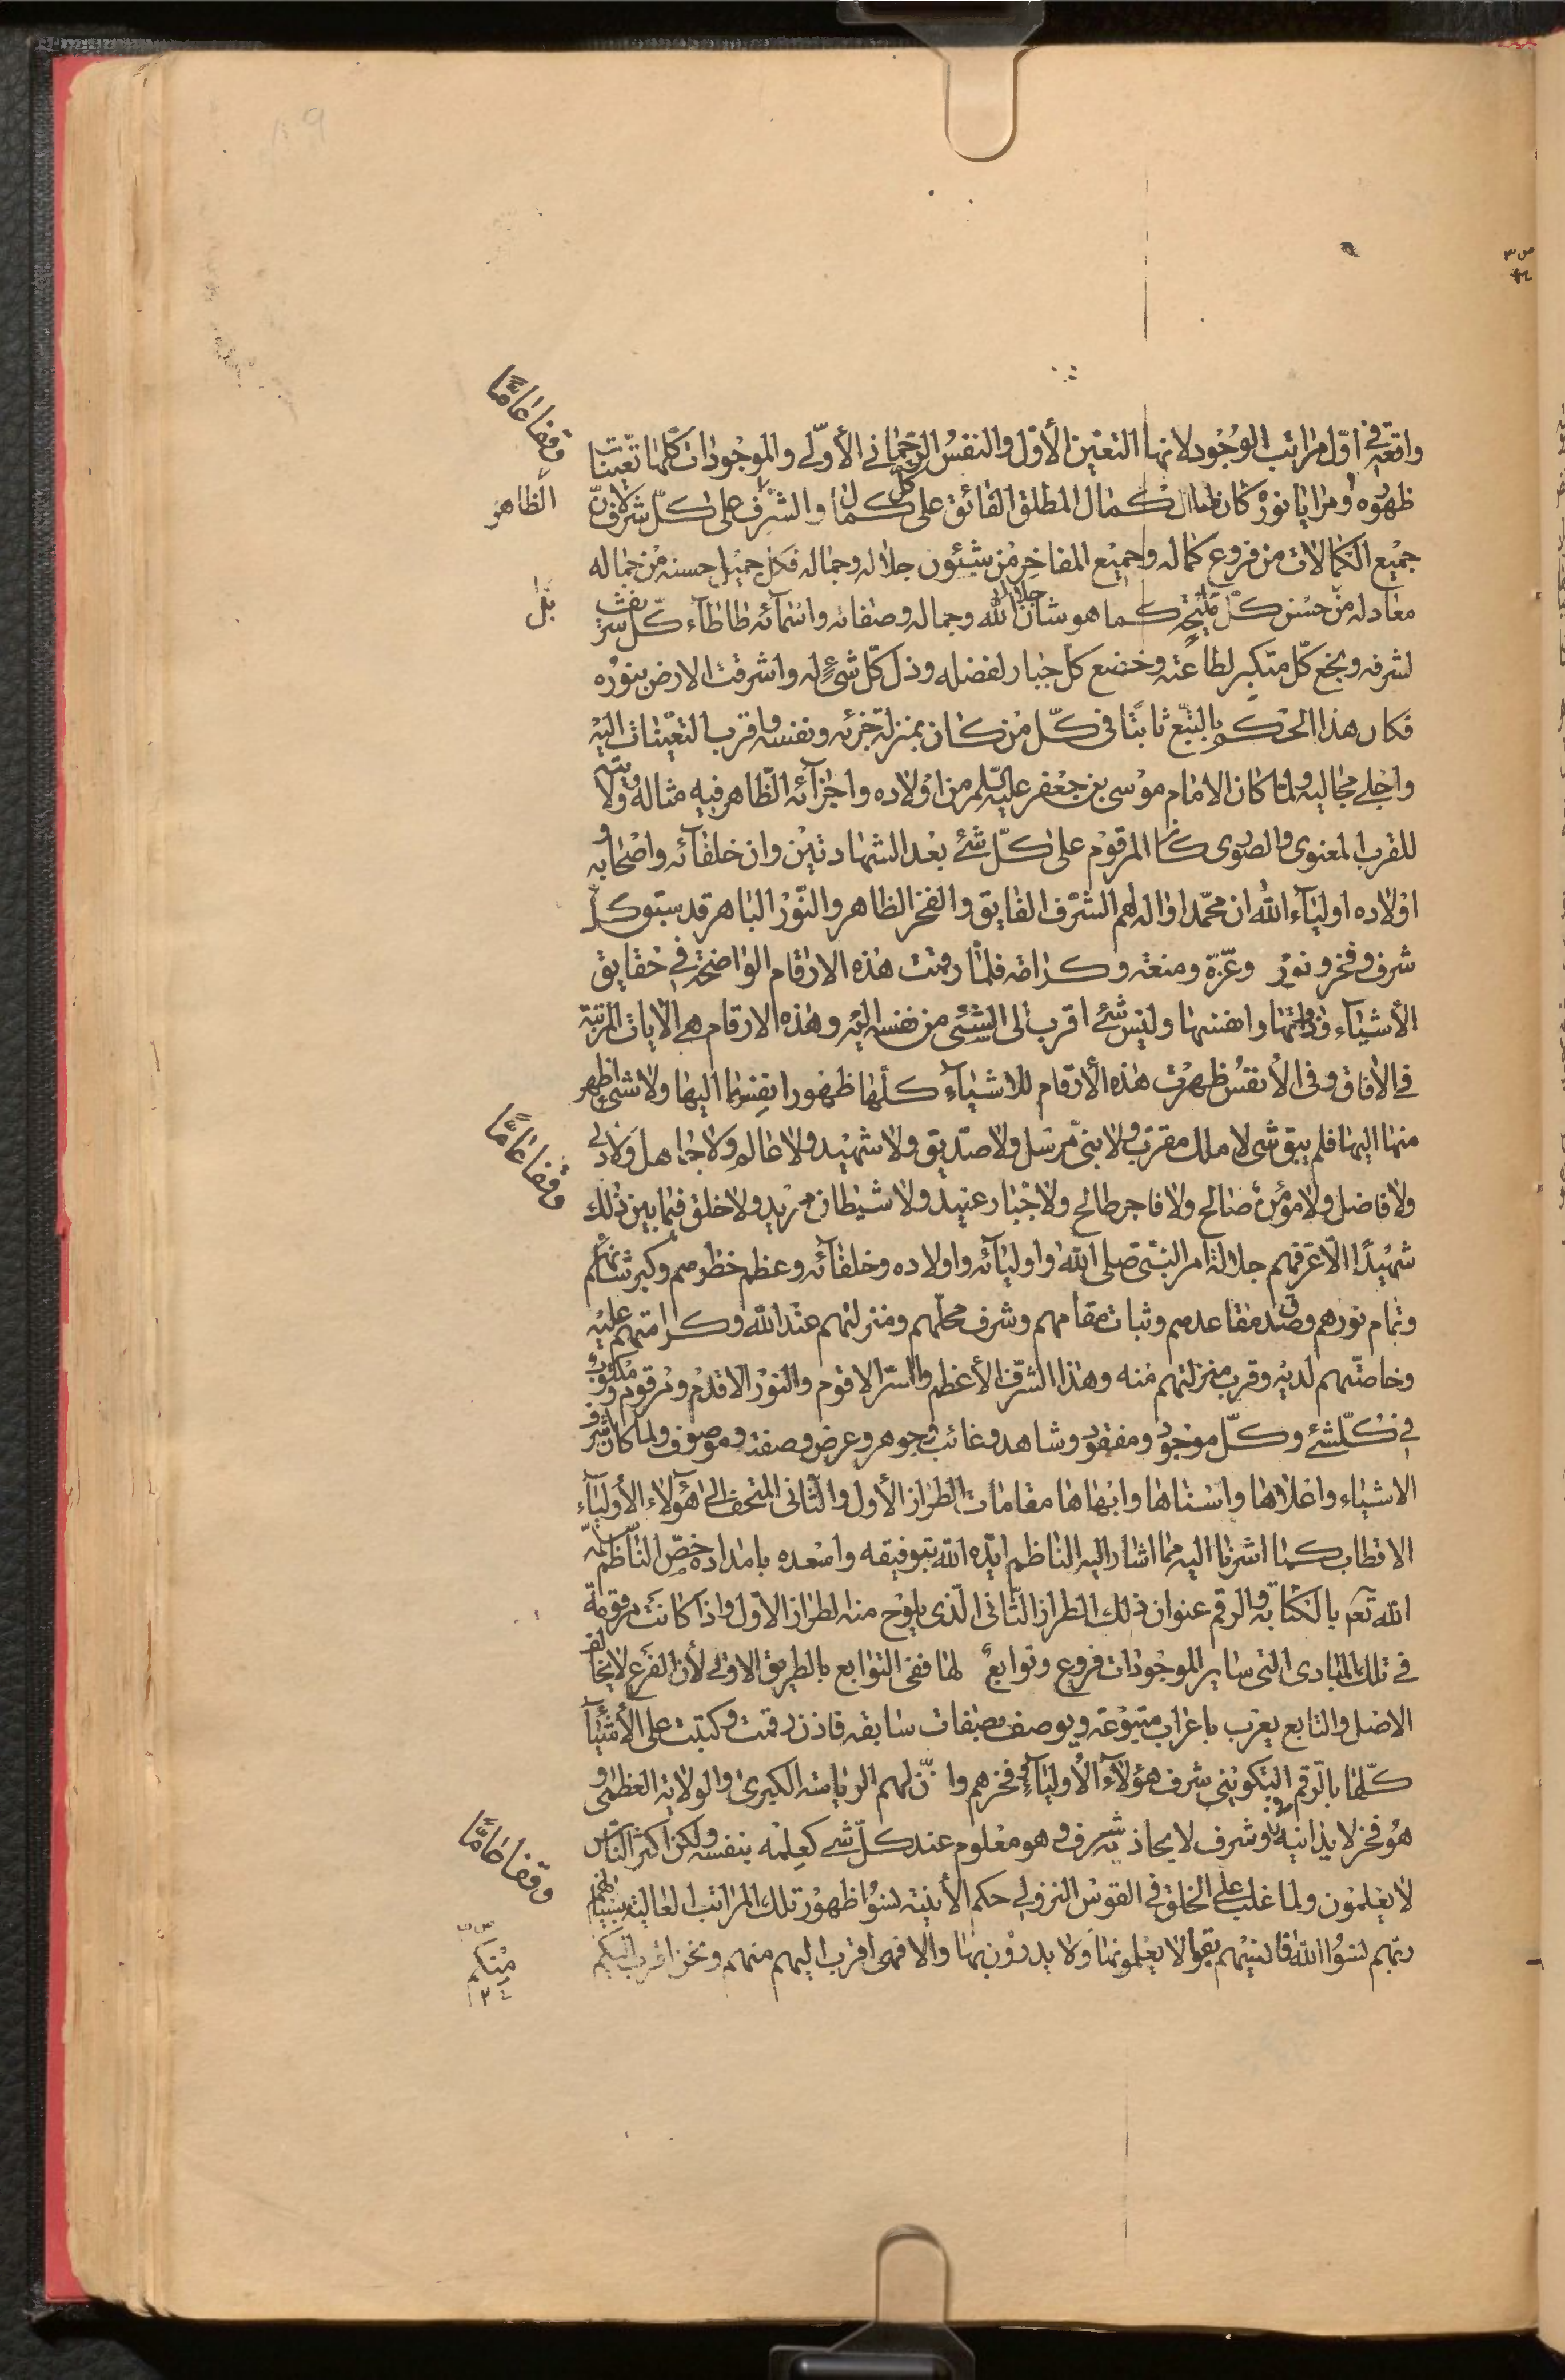 واقعة في اوّل مراتب الوجود لانها التعيّن الأوّل والنفس الرحماني الأوّلي والموجودات كلها تعيّنات
ظهوره ومرايا نوره كان له الكمال المطلق الفائق على كل كمال والشرف على كلّ شرف لانّ
جميع الكمالات من فروع كماله وجميع المفاخر من شئون جلاله وجماله فكل جميل حسنه من جماله
معادله من حسن كلّ مليحة كما هو شان جلال الله وجماله وصفاته واسمائه طاطاء كلّ شريف
لشرفه وبخع كلّ متكبر لطاعته وخضع كلّ جبار لفضله وذل كلّ شئ له واشرقت الارض بنوره
فكان هذا الحكم بالتبع ثابتا في كلّ من كان بمنزلة جزئه ونفسه واقرب التعيّنات اليه
واجلى مجاليه ولما كان الامام موسى بن جعفر عليه السلم من اولاده واجزآئه الظاهر فيه مثاله وولايته
للقرب المعنوى والصورى كان المرقوم على كلّ شئ بعد الشهادتين وان خلفآئه واصحابه و
اولاده اوليآء الله ان محمّدا واله لهم الشرف الفايق والفخر الظاهر والنّور الباهر قد سبق كل
شرف وفخر ونور وعزّة ومنعة وكرامة فلمّا رقمت هذه الارقام الواضحة في حقايق
الأشيآء وذواتها وانفسها وليس شئ اقرب الى الشئ من نفسه اليه وهذه الارقام هي الايات المرتبة
في الأفاق وفى الأنفس ظهرت هذه الأرقام للاشيآء كلّها ظهور انفسها اليها ولا شئ اظهر
منها اليها فلم يبق شئ لا ملك مقرّب ولا نبىّ مرسل ولا صدّيق ولا شهيد ولا عالم ولا جاهل ولا دنى
ولا فاضل ولا مؤمن صالح ولا فاجر طالح ولا جبار عنيد ولا شيطان مريد ولا خلق فيما بين ذلك
شهيدًا الّا عرّفهم جلالة امر النبىّ صلى الله واوليآئه واولاده وخلفآئه وعظم خطرهم وكبر شانهم
وتمام نورهم وصدق مقاعدهم وثبات مقامهم وشرف محلّهم ومنزلتهم عند الله وكرامتهم عليه
وخاصّتهم لديه وقرب منزلتهم منه وهذا الشرف الأعظم والسّر الاقوم والنور الاقدم ومرقوم ومكتوب
في كلّ شئ وكلّ موجود ومفقود وشاهد وغائب وجوهر وعرض وصفة وموصوف ولما كان اشرف
الاشياء واعلاها واسناها وابهاها مقامات الطراز الأول والثانى المتحف الى هؤلاء الأوليآء
الاقطاب كما اشرنا اليه مما اشار اليه الناظم ايّده الله بتوفيقه واسعده بامداده خصّ النّاظم سلّمه
الله تعم بالكتابة والرقم عنوان ذلك الطراز الثّانى الّذى يلوح منه الطراز الاول واذا كانت مرقومة
في تلك المبادى التى ساير الموجودات فروع وتوابع لها ففى التوابع بالطريق الاولى لأن الفرع لا يخالف
الاصل والتابع يعرب باعراب متبوعه ويوصف بصفات سابقه فاذن رقمت وكتبت على الأشيآ
كلّها بالرقم التكوينى شرف هؤلآء الأوليآء وفخرهم وانّ لهم الرياسة الكبرى والولاية العظمى و
هو فخر لا يدانيه وشرف لا يحاذيه شرف وهو معلوم عند كلّ شئ كعلمه بنفسه ولكن اكثر النّاس
لا يعلمون ولما غلب على الخلق في القوس النزولى حكم الأنية نسوا ظهور تلك المراتب العالية بنسيانهم
ربّهم نسوا الله فانسيهم بقوا لا يعلمونها ولا يدرون بها والا فهى اقرب اليهم منهم ونحن اقرب اليكم
وقفا عامًّا
الظاهر
بل
وقفا عامًّا
وقفا عامًّا
منكم